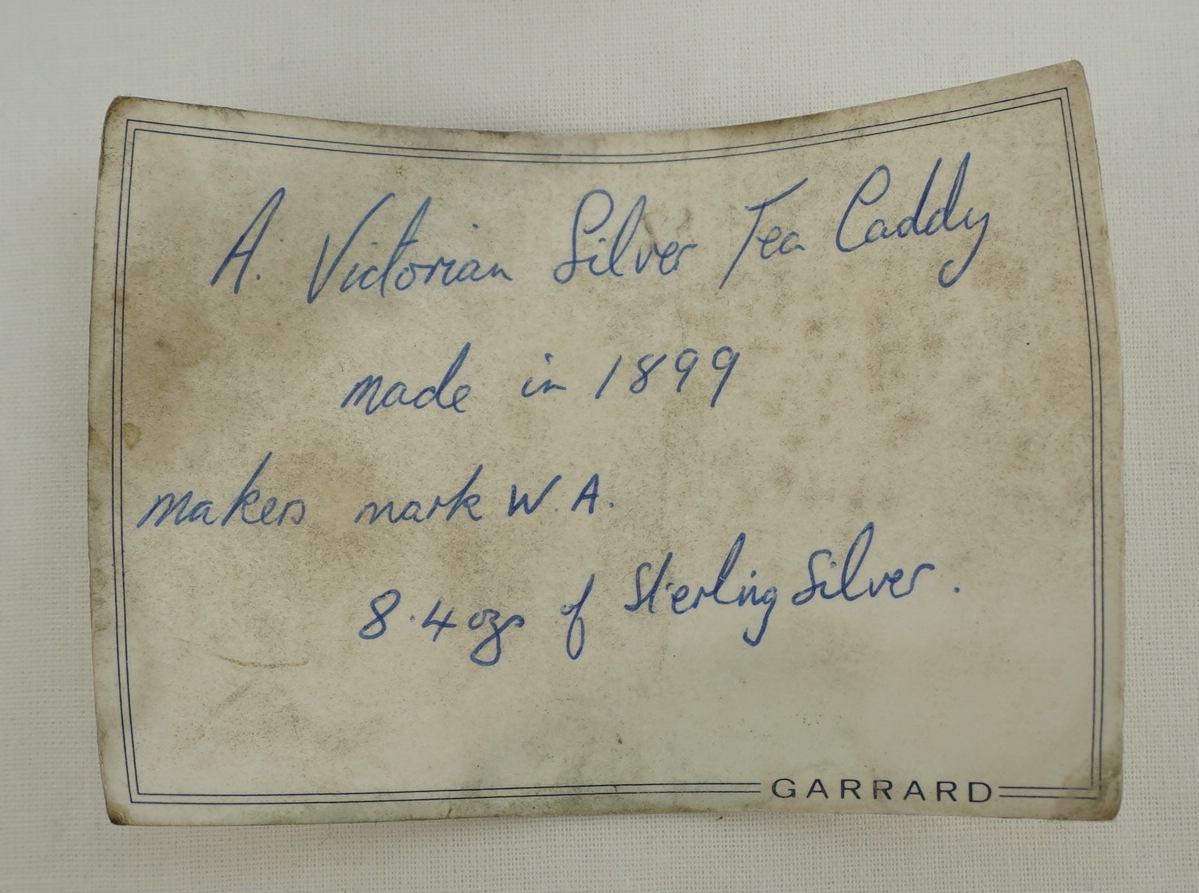 A. Victorian Silver Tea Caddy
made in 1899
makers mark W.A.
8.4 ozs of Sterling Silver.
GARRARD